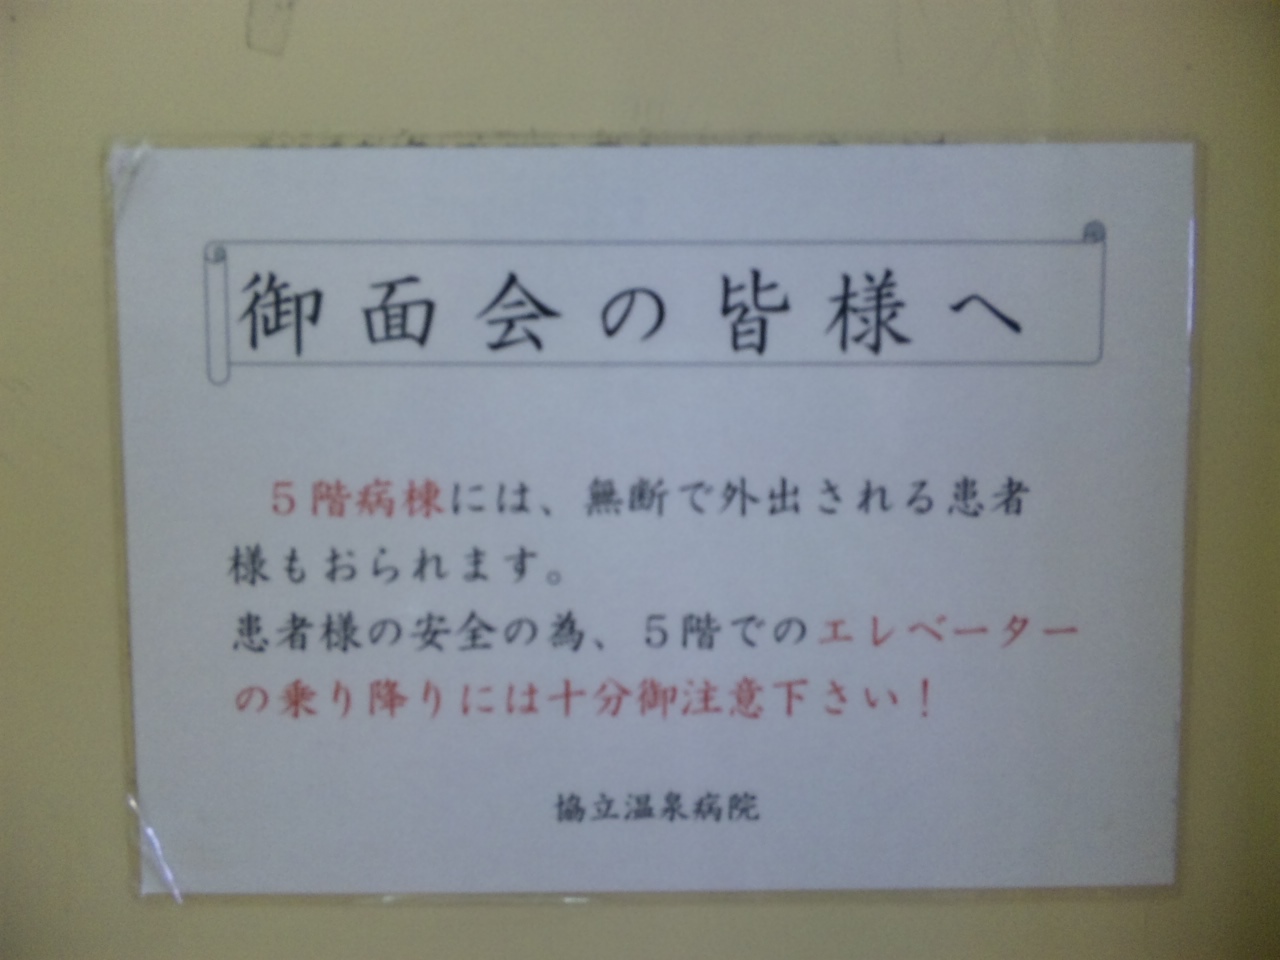 御面会の皆様へ
５階病棟には、無断で外出される患者
様もおられます。
患者様の安全の為、５階でのエレベーター
の乗り降りには十分御注意下さい！
協立温泉病院